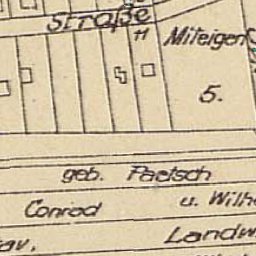 Straße
Miteigen
5.
geb. Paetsch
Conrad u. Wilh
Landw